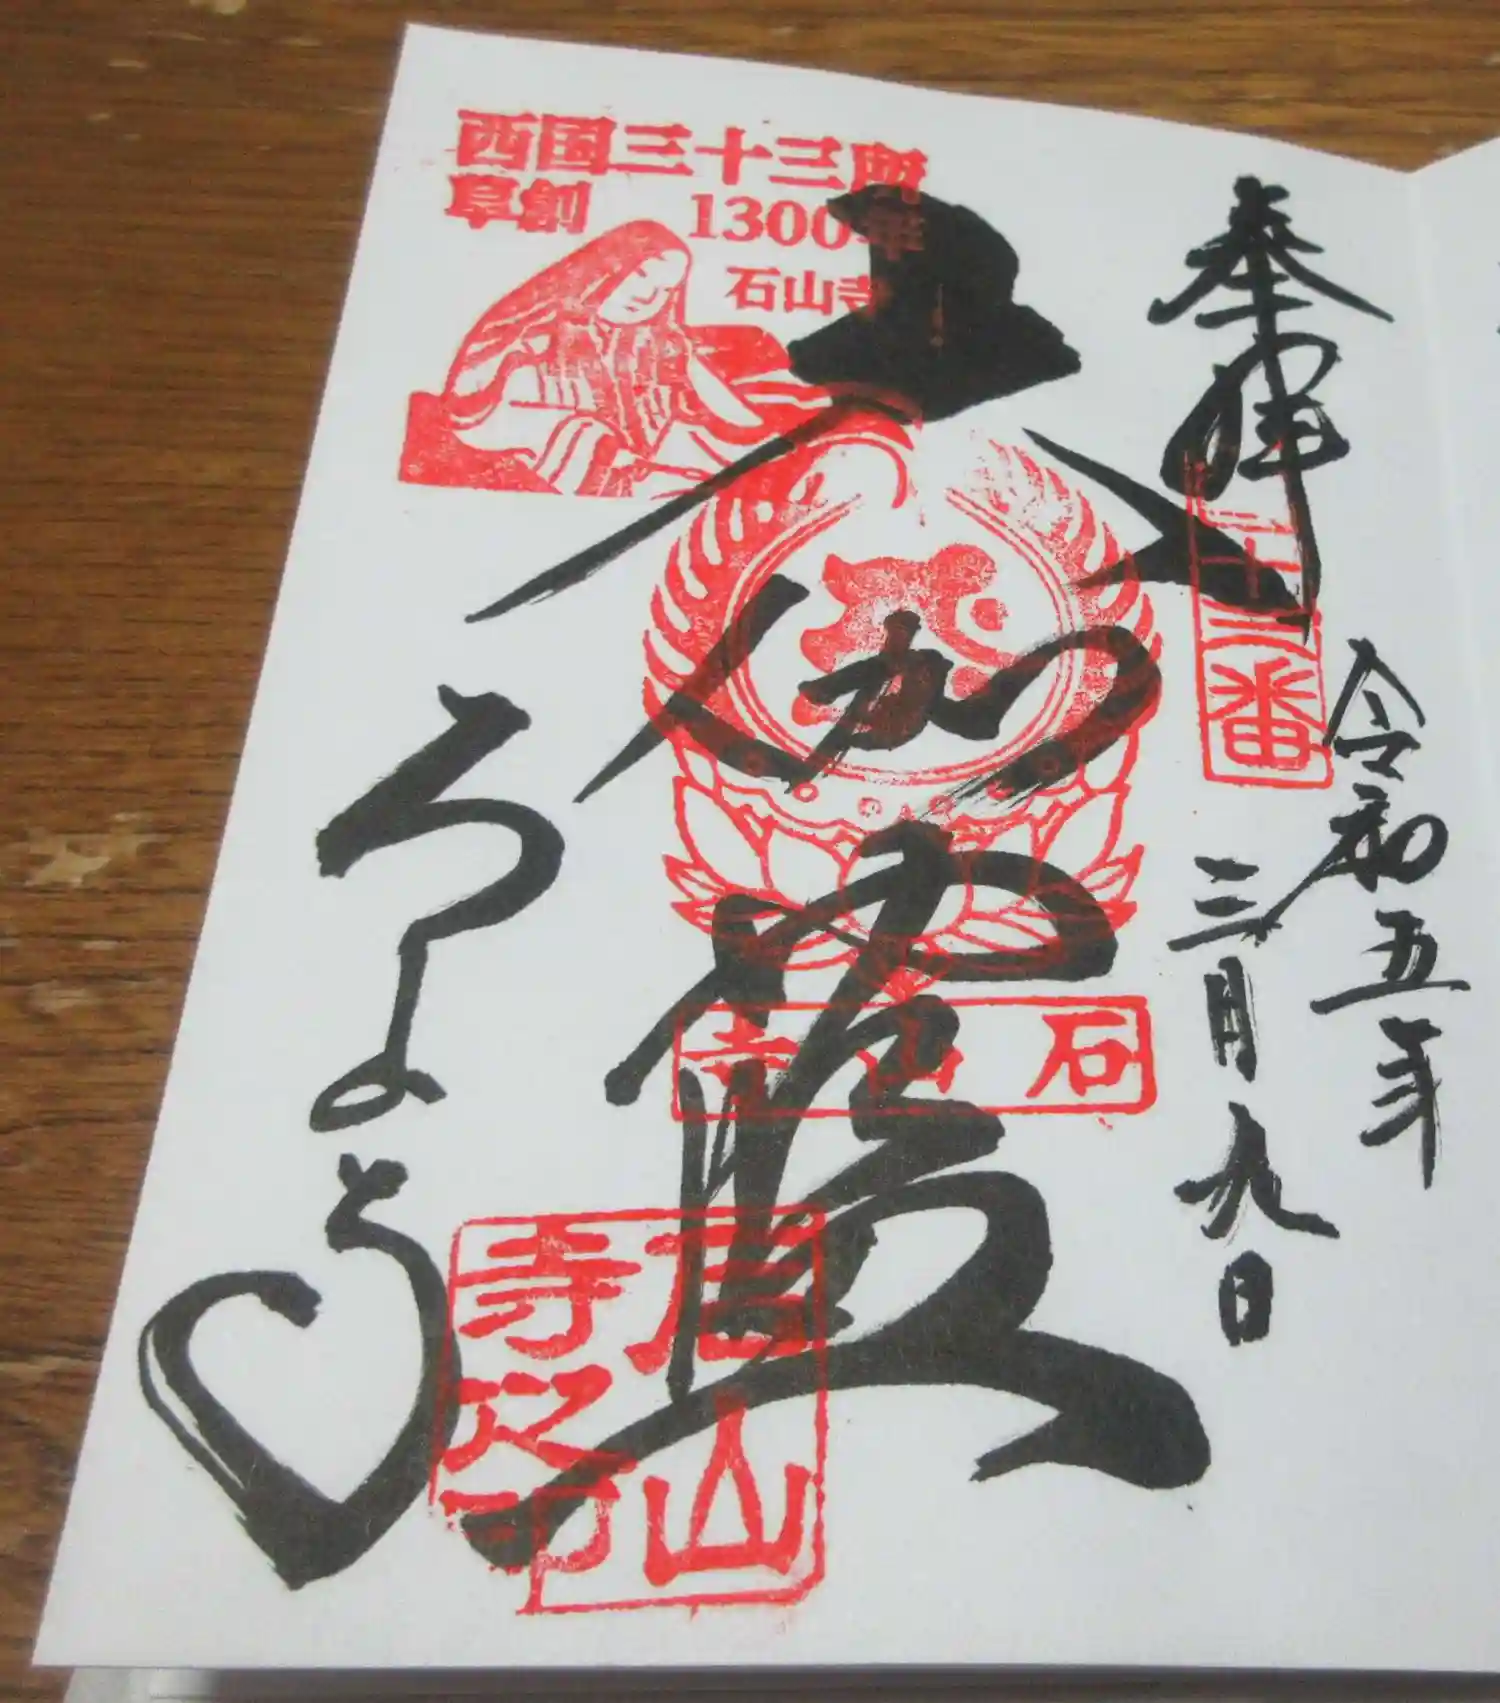 西国三十三所
草創 1300年
石山寺
奉拝
十三番
令和五年
三月九日
大伽藍
石山寺
石山寺
石山寺之印